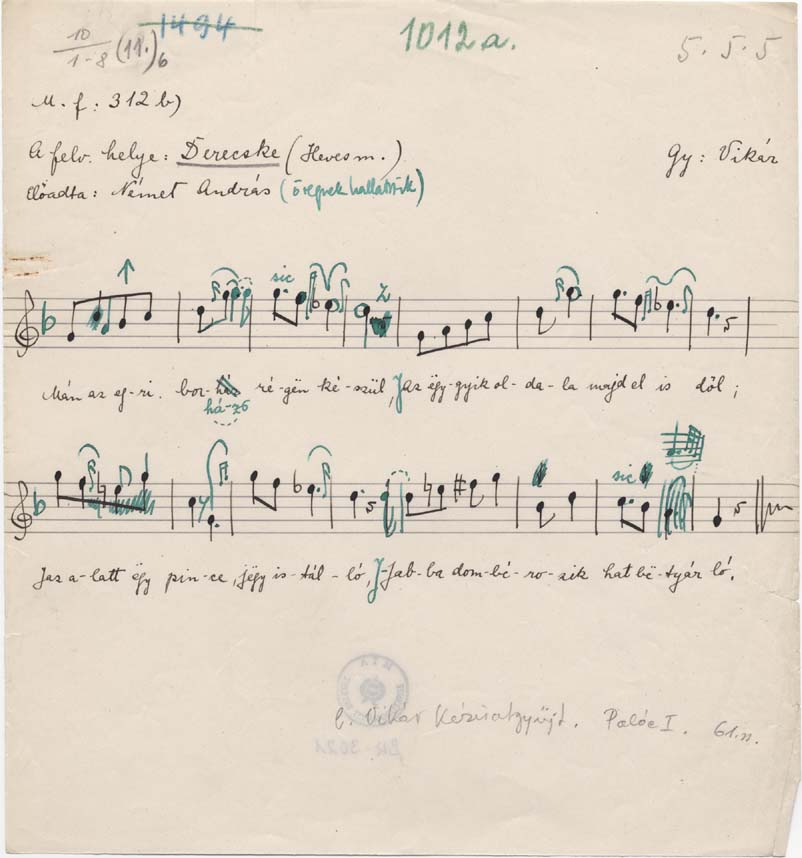 10/1-8 (11.)6 1494 1012a. 5. 5. 5
M. f: 312 b)
A felv. helye: Derecske (Heves m.) Gy: Vikár
Előadta: Német András (öregnek hallatszik)
sic
z
Mán az eg-ri. bor-ház ré-gën ké-szül, Jaz ëgy-gyik ol-da-la majd el is dől;
há-zó
sic
Jaz a-latt ëgy pin-ce, jëgy is-tál-ló, J-jab-ba dom-bé-ro-zik hat bë-tyár ló.
MTA
l. Vikár Kéziratgyűjt. Palóc I. 61.